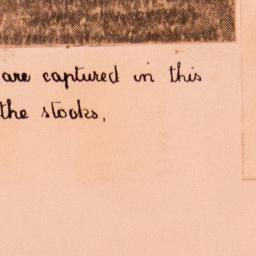 are captured in this
the stooks,